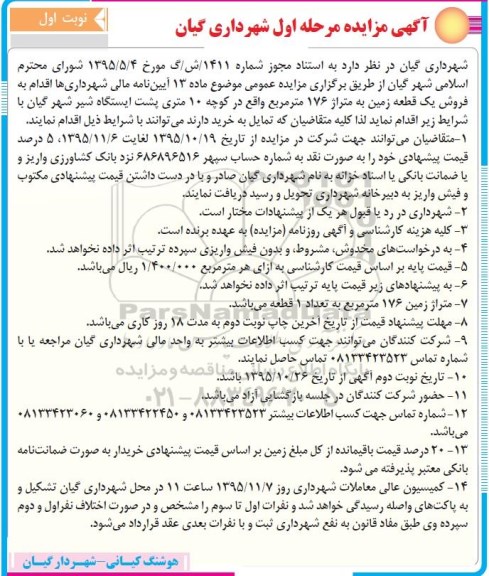 نوبت اول
آگهی مزایده مرحله اول شهرداری گیان
شهرداری گیان در نظر دارد به استناد مجوز شماره ۱۴۱۱/ش/گ مورخ ۱۳۹۵/۵/۴ شورای محترم
اسلامی شهر گیان از طریق برگزاری مزایده عمومی موضوع ماده ۱۳ آیین‌نامه مالی شهرداری‌ها اقدام به
فروش یک قطعه زمین به متراژ ۱۷۶ مترمربع واقع در کوچه ۱۰ متری پشت ایستگاه شیر شهر گیان با
شرایط زیر اقدام نماید لذا کلیه متقاضیان که تمایل به خرید دارند می‌توانند با شرایط ذیل اقدام نمایند.
۱-متقاضیان می‌توانند جهت شرکت در مزایده از تاریخ ۱۳۹۵/۱۰/۱۹ لغایت ۱۳۹۵/۱۱/۶، ۵ درصد
قیمت پیشهادی خود را به صورت نقد به شماره حساب سپهر ۶۸۶۸۹۶۵۱۶ نزد بانک کشاورزی واریز و
یا ضمانت بانکی یا اسناد خزانه به نام شهرداری گیان صادر و یا در دست داشتن قیمت پیشنهادی مکتوب
و فیش واریز به دبیرخانه شهرداری تحویل و رسید دریافت نمایند.
۲- شهرداری در رد یا قبول هر یک از پیشنهادات مختار است.
۳- کلیه هزینه کارشناسی و آگهی روزنامه (مزایده) به عهده برنده است.
۴- به درخواست‌های مخدوش، مشروط، و بدون فیش واریزی سپرده ترتیب اثر داده نخواهد شد.
۵- قیمت پایه بر اساس قیمت کارشناسی به ازای هر مترمربع ۱/۴۰۰/۰۰۰ ریال می‌باشد.
۶- به پیشنهادهای زیر قیمت پایه ترتیب اثر داده نخواهد شد.
۷- متراژ زمین ۱۷۶ مترمربع به تعداد ۱ قطعه می‌باشد.
۸- مهلت پیشنهاد قیمت از تاریخ آخرین چاپ نوبت دوم به مدت ۱۸ روز کاری می‌باشد.
۹- شرکت کنندگان می‌توانند جهت کسب اطلاعات بیشتر به واحد مالی شهرداری گیان مراجعه یا با
شماره تماس ۰۸۱۳۳۴۲۳۵۲۳ تماس حاصل نمایند.
۱۰- تاریخ نوبت دوم آگهی از تاریخ ۱۳۹۵/۱۰/۲۶ باشد.
۱۱- حضور شرکت کنندگان در جلسه بازگشایی آزاد می‌باشد.
۱۲-شماره تماس جهت کسب اطلاعات بیشتر ۰۸۱۳۳۴۲۳۵۲۳ و ۰۸۱۳۳۴۲۲۴۵۰ و ۰۸۱۳۳۴۲۳۰۶۰
می‌باشد.
۱۳- ۲۰ درصد قیمت باقیمانده از کل مبلغ زمین بر اساس قیمت پیشنهادی خریدار به صورت ضمانت‌نامه
بانکی معتبر پذیرفته می شود.
۱۴- کمیسیون عالی معاملات شهرداری روز ۱۳۹۵/۱۱/۷ ساعت ۱۱ در محل شهرداری گیان تشکیل و
به پاکت‌های واصله رسیدگی خواهد شد و نفرات اول تا سوم را مشخص و در صورت اختلاف نفراول و دوم
سپرده وی طبق مفاد قانون به نفع شهرداری ثبت و با نفرات بعدی عقد قرارداد می‌شود.
هوشنگ کیانی-شهردار گیان